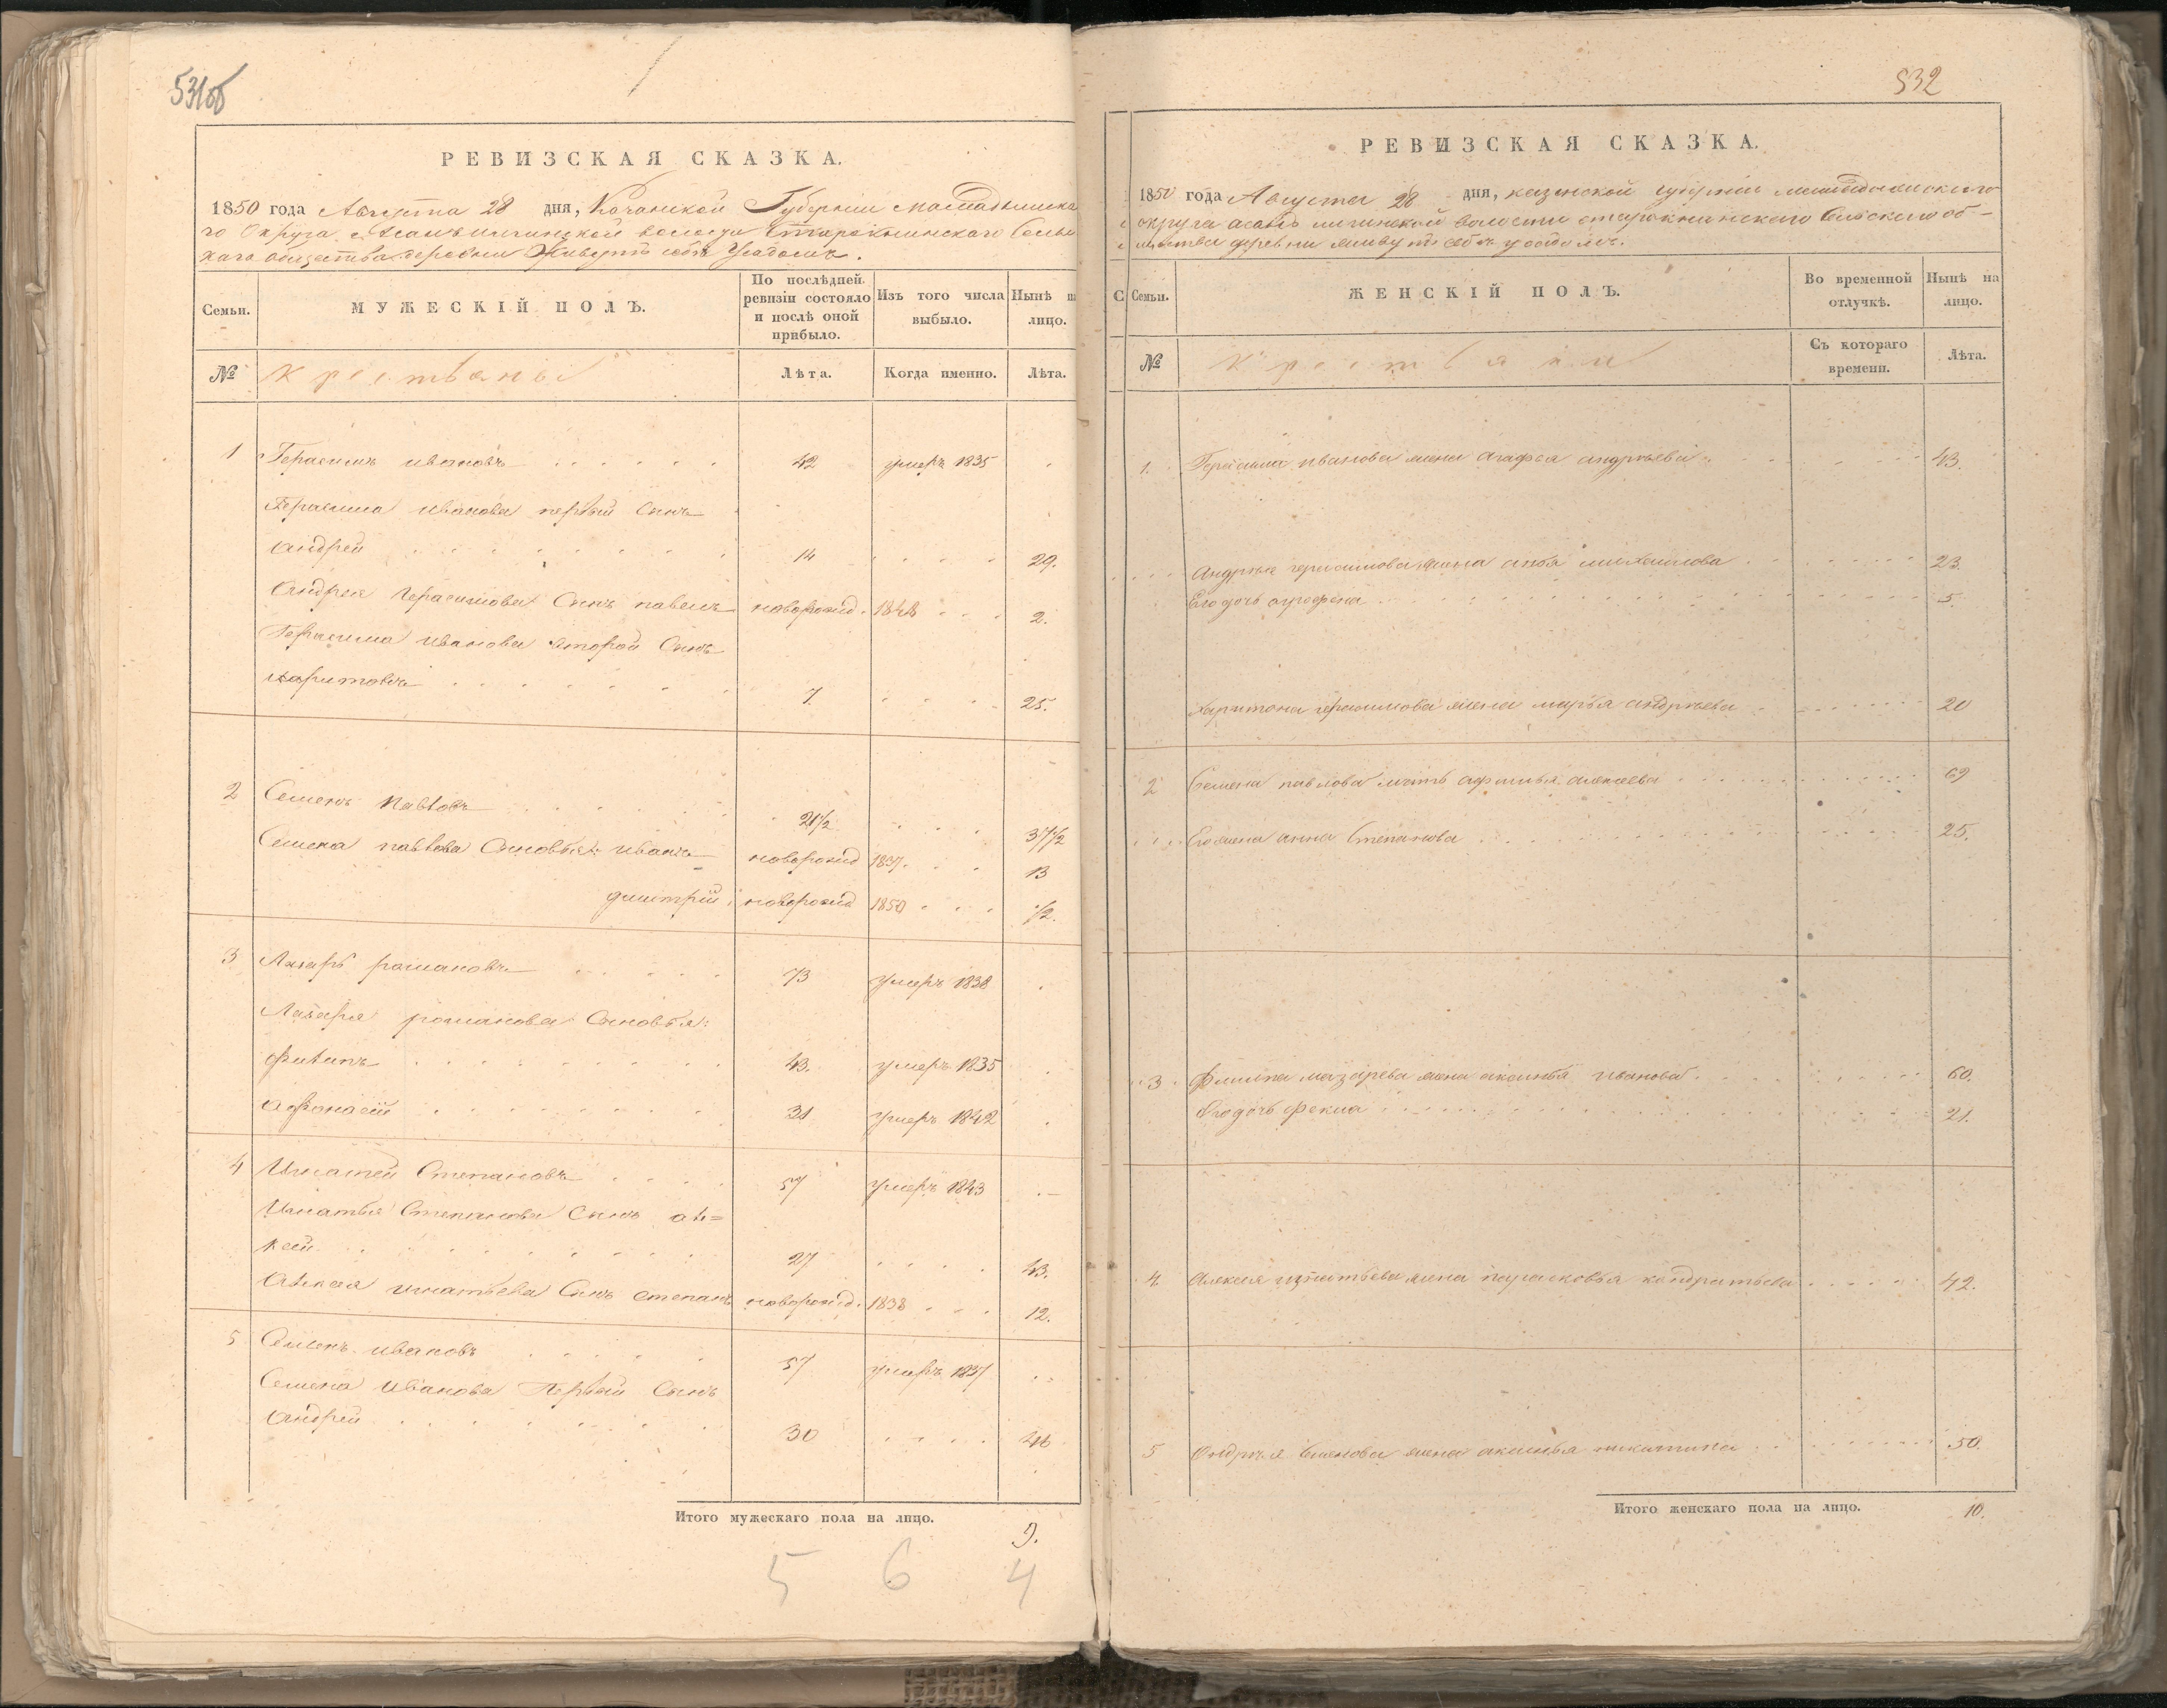 531об
РЕВИЗСКАЯ СКАЗКА.
1850 года Августа 28 дня, Казанской Губернiи
го Округа волости Старокнинскаго Сельс
каго общества деревни Живутъ себѣ Уѣздомъ.
Семьи.
МУЖЕСКІЙ ПОЛЪ.
По послѣдней ревизіи состояло и послѣ оной прибыло.
Изъ того числа выбыло.
Нынѣ на лицо.
№
Крестьяны
Лѣта.
Когда именно.
Лѣта.
1 Герасимъ ивановъ 42 умеръ 1835
Герасима иванова первый Сынъ
Андрей 14 29.
Андрея Герасимова Сынъ павелъ новорожд. 1848 2.
Герасима иванова второй Сынъ
харитонъ 7. 25.
2 Семенъ павловъ 21½ 37½
Семена павлова Сыновья: иванъ новорожд 1837. 13
дмитрій новорожд 1850 ½.
3 Лазарь романовъ 73 умеръ 1838
Лазаря романова Сыновья:
филипъ 43. умеръ 1835
афонасій 31 умеръ 1842
4 Игнатей Степановъ 57 умеръ 1843
Игнатья Степанова Сынъ але=
ксей 27 43.
Алексея игнатьева Сынъ степанъ новорожд. 1838 12.
5 Семенъ ивановъ 57 умеръ 1837
Семена иванова Первый Сынъ
андрей 30 46
Итого мужескаго пола на лицо. 9.
5 6 4
532
РЕВИЗСКАЯ СКАЗКА.
1850 года Августа 28 дня, казанской губернiи
округа волости старокнинскаго Сельскаго об-
щества деревни живутъ себѣ уѣздомъ.
Семьи.
ЖЕНСКІЙ ПОЛЪ.
Во временной отлучкѣ.
Нынѣ на лицо.
№
Крестьяни
Съ котораго времени.
Лѣта.
1. Герасима иванова жена агафья андрѣева 43.
Андрѣя герасимова жена анна михаилова 23.
Его дочь аграфена 5.
Харитона герасимова жена марья андрѣева 20
2 Семена павлова мать афимья алексеева 69
Его жена анна Степанова 25.
3 Филипа лазарева жена аксинья иванова 60.
Его дочь фекла 21.
4. Алексея игнатьева жена парасковья кондратьева 42.
5 Андрѣя Семенова жена аксинья никитина 50.
Итого женскаго пола на лицо. 10.